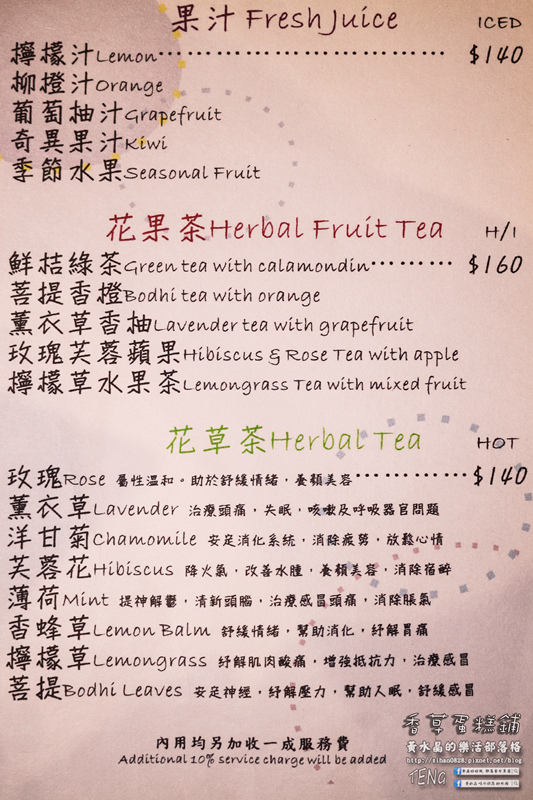 果汁 Fresh Juice ICED
檸檬汁Lemon $140
柳橙汁Orange
葡萄柚汁Grapefruit
奇異果汁Kiwi
季節水果Seasonal Fruit
花果茶Herbal Fruit Tea H/I
鮮桔綠茶Green tea with calamondin $160
菩提香橙Bodhi tea with orange
薰衣草香柚Lavender tea with grapefruit
玫瑰芙蓉蘋果Hibiscus & Rose Tea with apple
檸檬草水果茶Lemongrass Tea with mixed fruit
花草茶Herbal Tea HOT
玫瑰Rose 屬性溫和。助於舒緩情緒，養顏美容 $140
薰衣草Lavender 治療頭痛，失眠，咳嗽及呼吸器官問題
洋甘菊Chamomile 安定消化系統，消除疲勞，放鬆心情
芙蓉花Hibiscus 降火氣，改善水腫，養顏美容，消除宿醉
薄荷Mint 提神解鬱，清新頭腦，治療感冒頭痛，消除脹氣
香蜂草Lemon Balm 舒緩情緒，幫助消化，紓解胃痛
檸檬草Lemongrass 紓解肌肉酸痛，增強抵抗力，治療感冒
菩提Bodhi Leaves 安定神經，紓解壓力，幫助入眠，舒緩感冒
內用均另加收一成服務費
Additional 10% service charge will be added
香草蛋糕鋪
黃水晶的樂活部落格
http://sihan0828.pixnet.net/blog
TENG